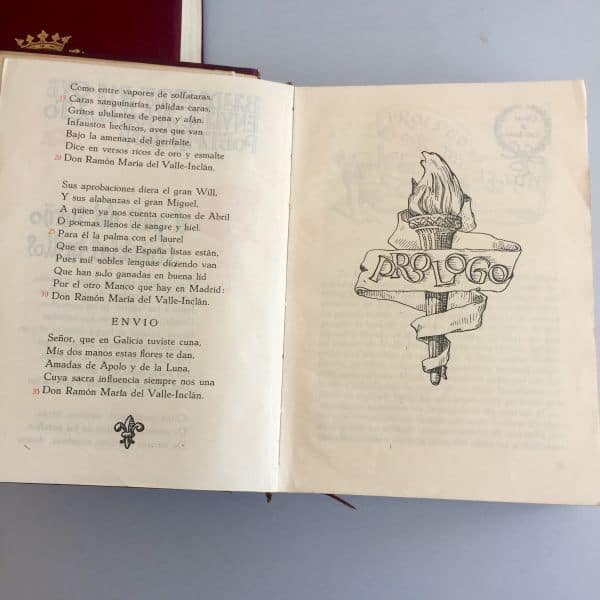 Como entre vapores de solfataras.
15 Caras sanguinarias, pálidas caras,
Gritos ululantes de pena y afán,
Infaustos hechizos, aves que van
Bajo la amenaza del gerifalte,
Dice en versos ricos de oro y esmalte
20 Don Ramón María del Valle-Inclán.
Sus aprobaciones diera el gran Will,
Y sus alabanzas el gran Miguel,
A quien ya nos cuenta cuentos de Abril
O poemas llenos de sangre y hiel.
25 Para él la palma con el laurel
Que en manos de España listas están,
Pues mil nobles lenguas diciendo van
Que han sido ganadas en buena lid
Por el otro Manco que hay en Madrid:
30 Don Ramón María del Valle-Inclán.
ENVIO
Señor, que en Galicia tuviste cuna,
Mis dos manos estas flores te dan,
Amadas de Apolo y de la Luna,
Cuya sacra influencia siempre nos una
35 Don Ramón María del Valle-Inclán.
PROLOGO